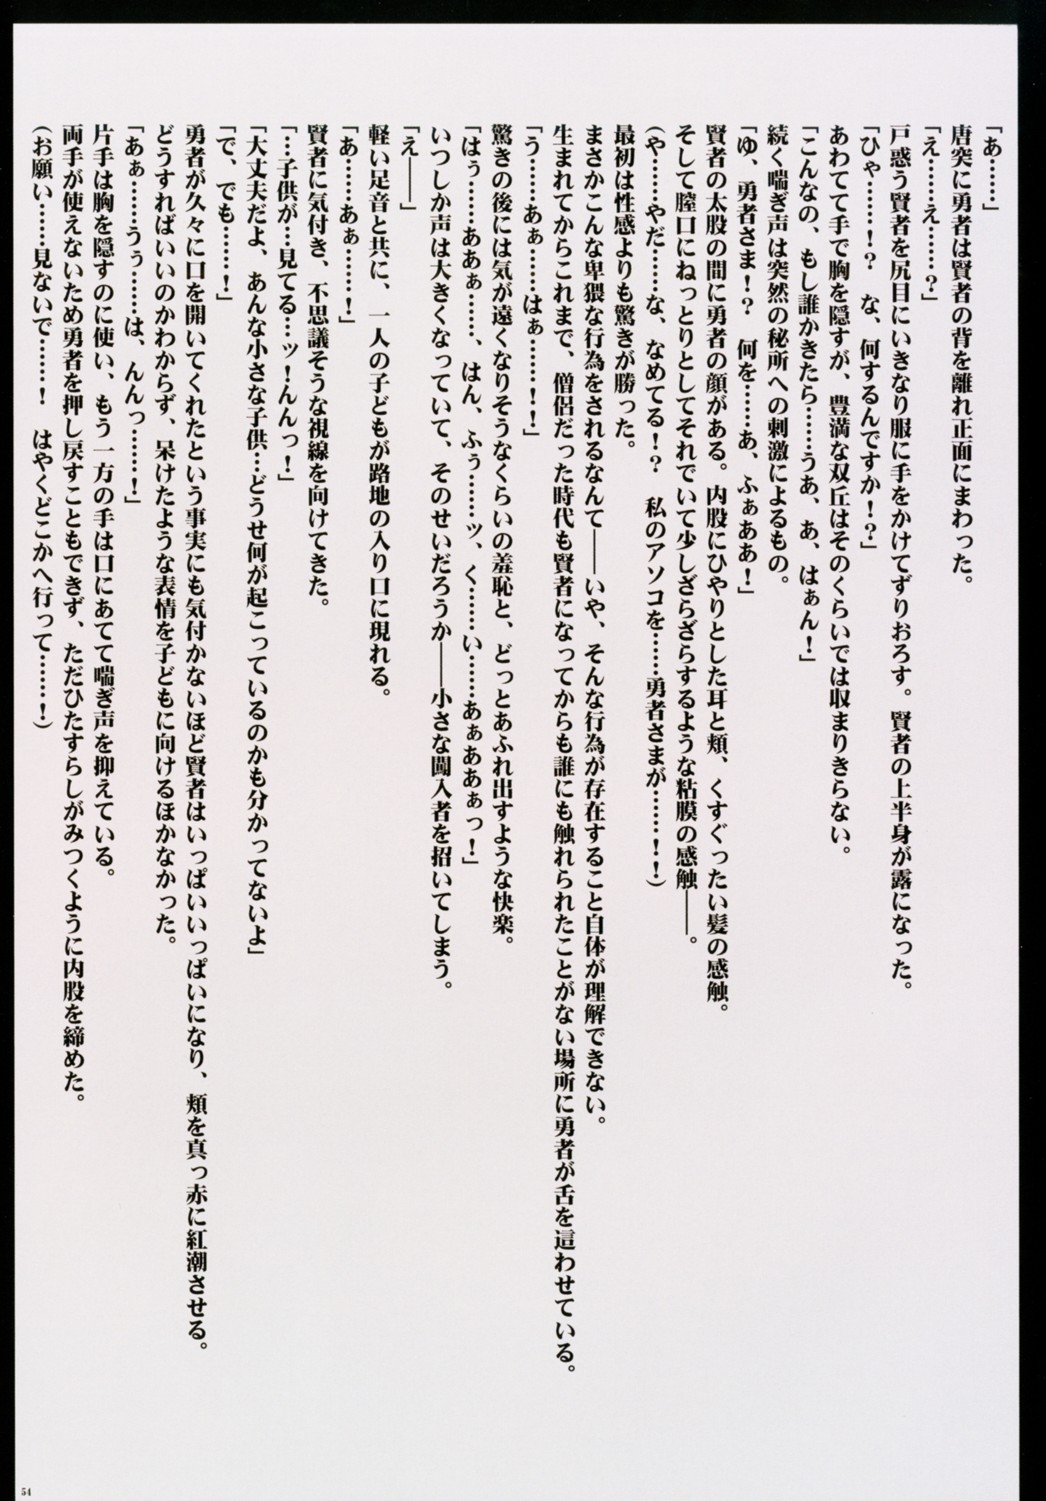 「あ……」
唐突に勇者は賢者の背を離れ正面にまわった。
「え……え……？」
戸惑う賢者を尻目にいきなり服に手をかけてずりおろす。賢者の上半身が露になった。
「ひゃ……！？　な、何するんですか！？」
あわてて手で胸を隠すが、豊満な双丘はそのくらいでは収まりきらない。
「こんなの、もし誰かきたら……うあ、あ、はぁん！」
続く喘ぎ声は突然の秘所への刺激によるもの。
「ゆ、勇者さま！？　何を……あ、ふぁああ！」
賢者の太股の間に勇者の顔がある。内股にひやりとした耳と頬、くすぐったい髪の感触。
そして膣口にねっとりとしてそれでいて少しざらざらするような粘膜の感触――。
（や……やだ……な、なめてる！？　私のアソコを……勇者さまが……！！）
最初は性感よりも驚きが勝った。
まさかこんな卑猥な行為をされるなんて――いや、そんな行為が存在すること自体が理解できない。
生まれてからこれまで、僧侶だった時代も賢者になってからも誰にも触れられたことがない場所に勇者が舌を這わせている。
「う……あぁ……はぁ……！！」
驚きの後には気が遠くなりそうなくらいの羞恥と、どっとあふれ出すような快楽。
「はぅ……ああぁ……、はん、ふぅ……ッ、く……い……あぁああぁっ！」
いつしか声は大きくなっていて、そのせいだろうか――小さな闖入者を招いてしまう。
「え――」
軽い足音と共に、一人の子どもが路地の入り口に現れる。
「あ……あぁ……！」
賢者に気付き、不思議そうな視線を向けてきた。
「…子供が…見てる…ッ！んんっ！」
「大丈夫だよ、あんな小さな子供…どうせ何が起こっているのかも分かってないよ」
「で、でも……！」
勇者が久々に口を開いてくれたという事実にも気付かないほど賢者はいっぱいいっぱいになり、頬を真っ赤に紅潮させる。
どうすればいいのかわからず、呆けたような表情を子どもに向けるほかなかった。
「あぁ……うぅ……は、んんっ……！」
片手は胸を隠すのに使い、もう一方の手は口にあてて喘ぎ声を抑えている。
両手が使えないため勇者を押し戻すこともできず、ただひたすらしがみつくように内股を締めた。
（お願い……見ないで……！　はやくどこかへ行って……！）
54